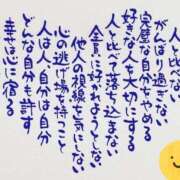 人と比べない
がんばり過ぎない
完璧な自分をやめる
好きな人を大切にする
人と比べて落ち込まない
全員に好かれようとしない
他人の視線を気にしない
心の逃げ場を持つこと
人は人自分は自分
どんな自分も許す
幸せは心に宿る